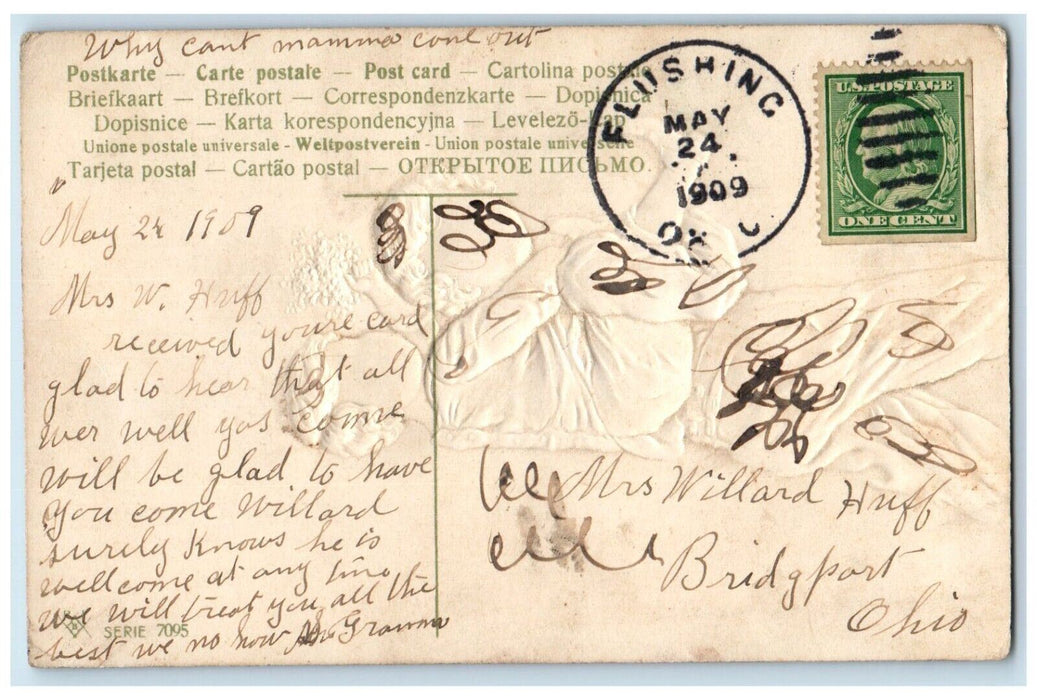 Why cant mamma come out
Postkarte — Carte postale — Post card — Cartolina postale
Briefkaart — Brefkort — Correspondenzkarte — Dopisnica
Dopisnice — Karta korespondencyjna — Levelező-Lap
Unione postale universale - Weltpostverein - Union postale universelle
Tarjeta postal — Cartão postal — ОТКРЫТОЕ ПИСЬМО.
FLUSHING
MAY
24
1909
U.S. POSTAGE
ONE CENT
May 24 1909
Mrs W. Huff
received youre card
glad to hear that all
wer well yas come
will be glad to have
you come Willard
surely knows he is
wellcome at any time
we will treat you all the
best we no how Gramma
SERIE 7095
Mrs Willard Huff
Bridgport
Ohio